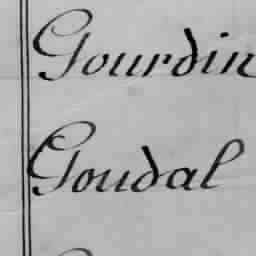 Gourdin
Goudal